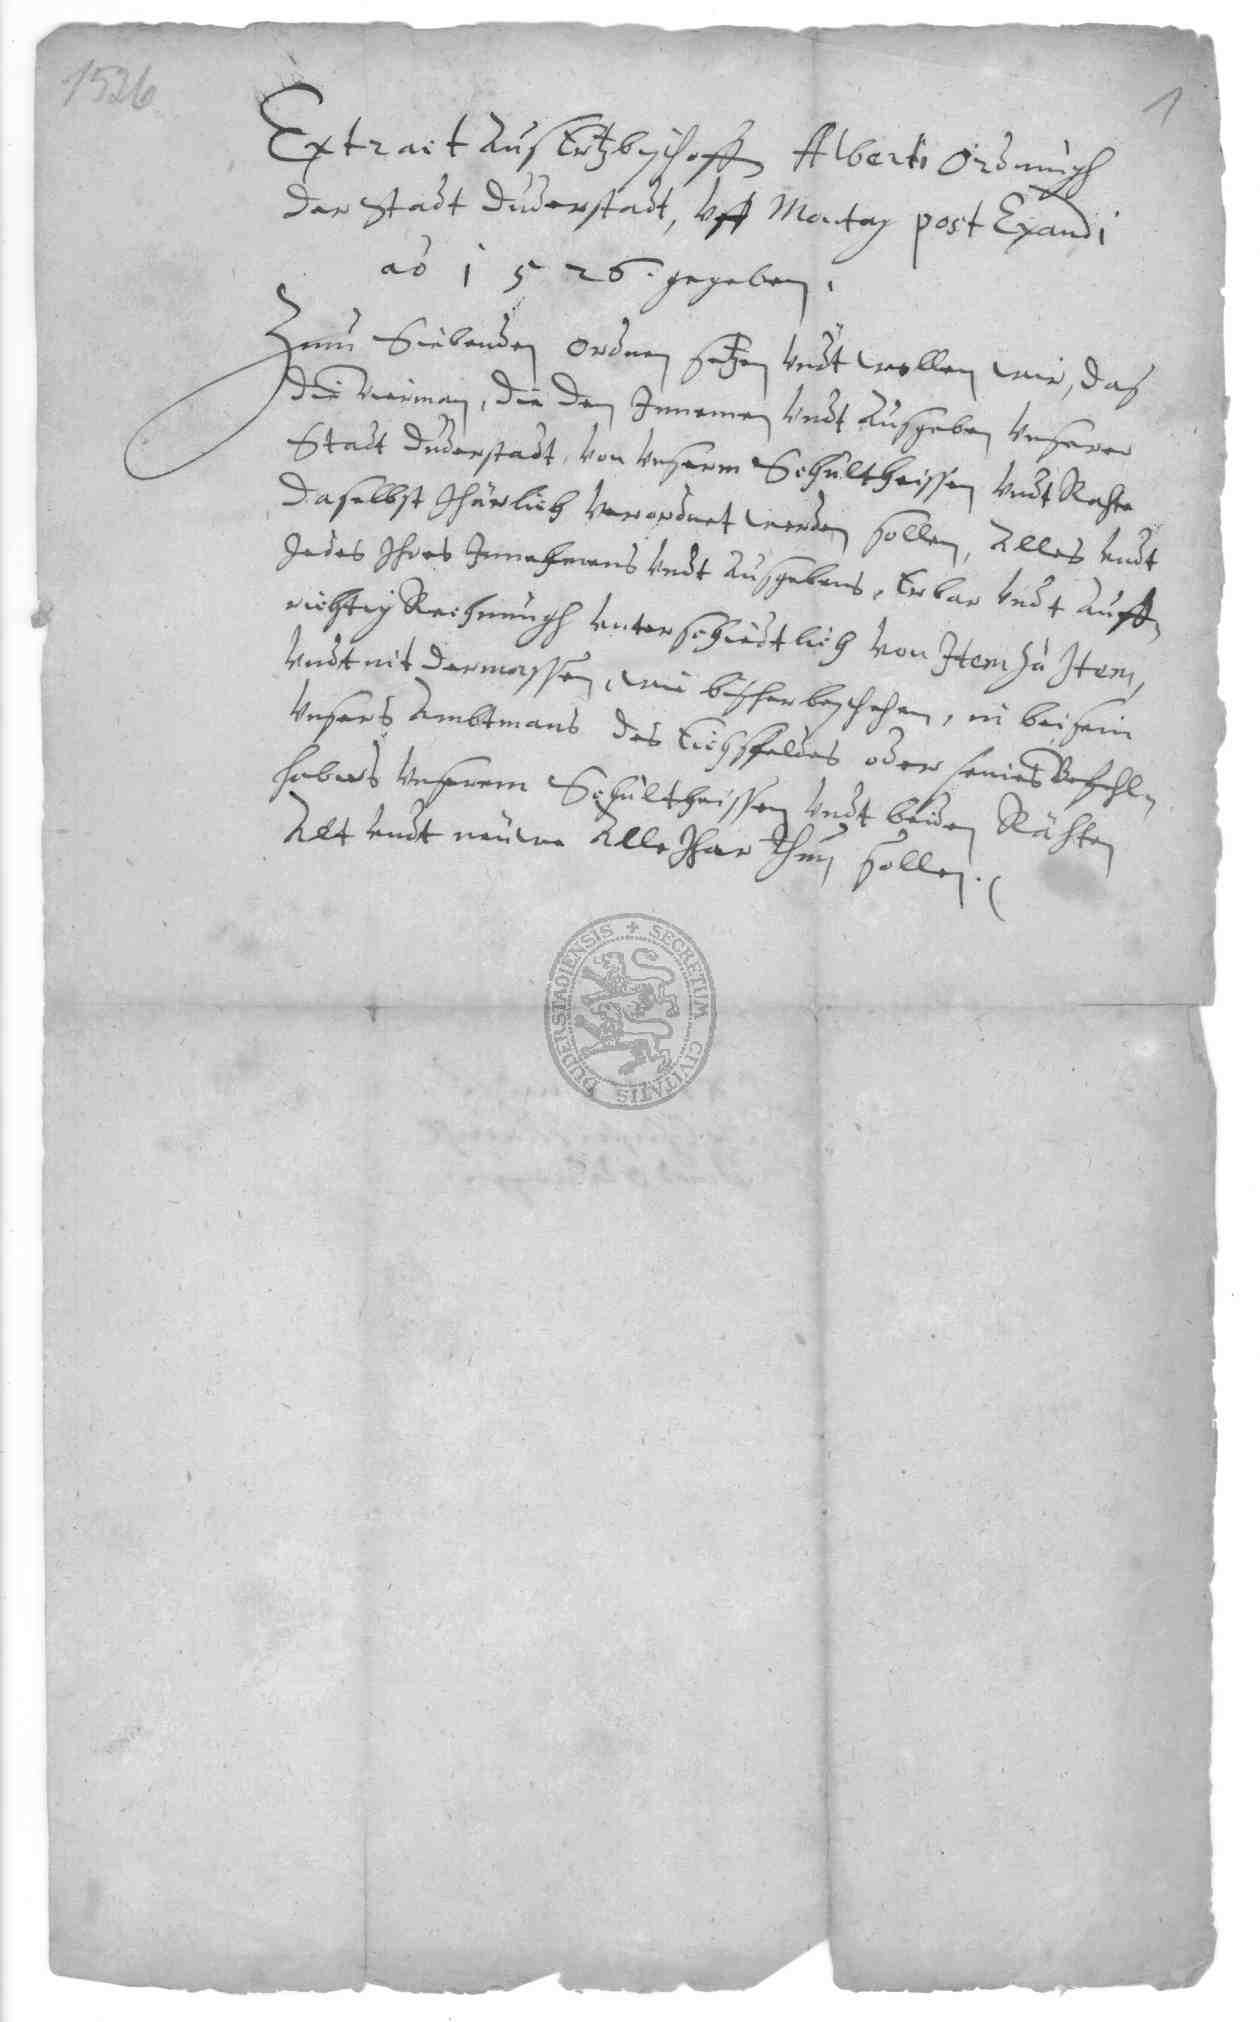 1526
1
Extract Aus Ertzbischoffs Alberti Ordnungh
der Stadt Duderstadt, Vff Montag post Exaudi
ao 1526. gegeben.
Zum Siebenden Ordnen setzen Vndt wollen wir, das
die Vierman, die den Innemen Vndt Ausgeben Vnserer
Stadt Duderstadt, Von Vnserm Schultheissen Vndt Rahte
daselbst Jhärlich Verordnet werden sollen, Alles Vndt
Jedes Jhres Innehmens Vndt Ausgebens, Erbar Vndt Auff
richtig Rechnungh Vnterschiedtlich Von Item zu Item,
Vndt nit dermassen, wie bisher beschehen, in beisein
Vnsers Ambtmans des Eichsfeldes oder seines Befehls
habers Vnserem Schultheissen Vndt beiden Rähten
Alt Vndt neuwe Alle Jhar Thun sollen.
SECRETUM CIVITATIS DUDERSTADIENSIS